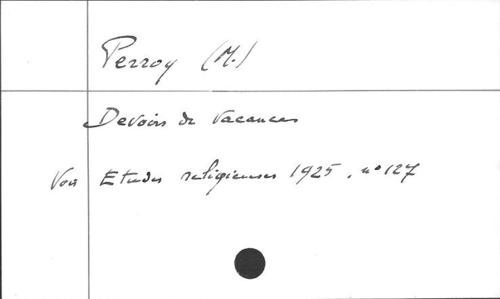 Perroy (M.)
Devoirs de vacances
Voir Etudes religieuses 1925, n° 127